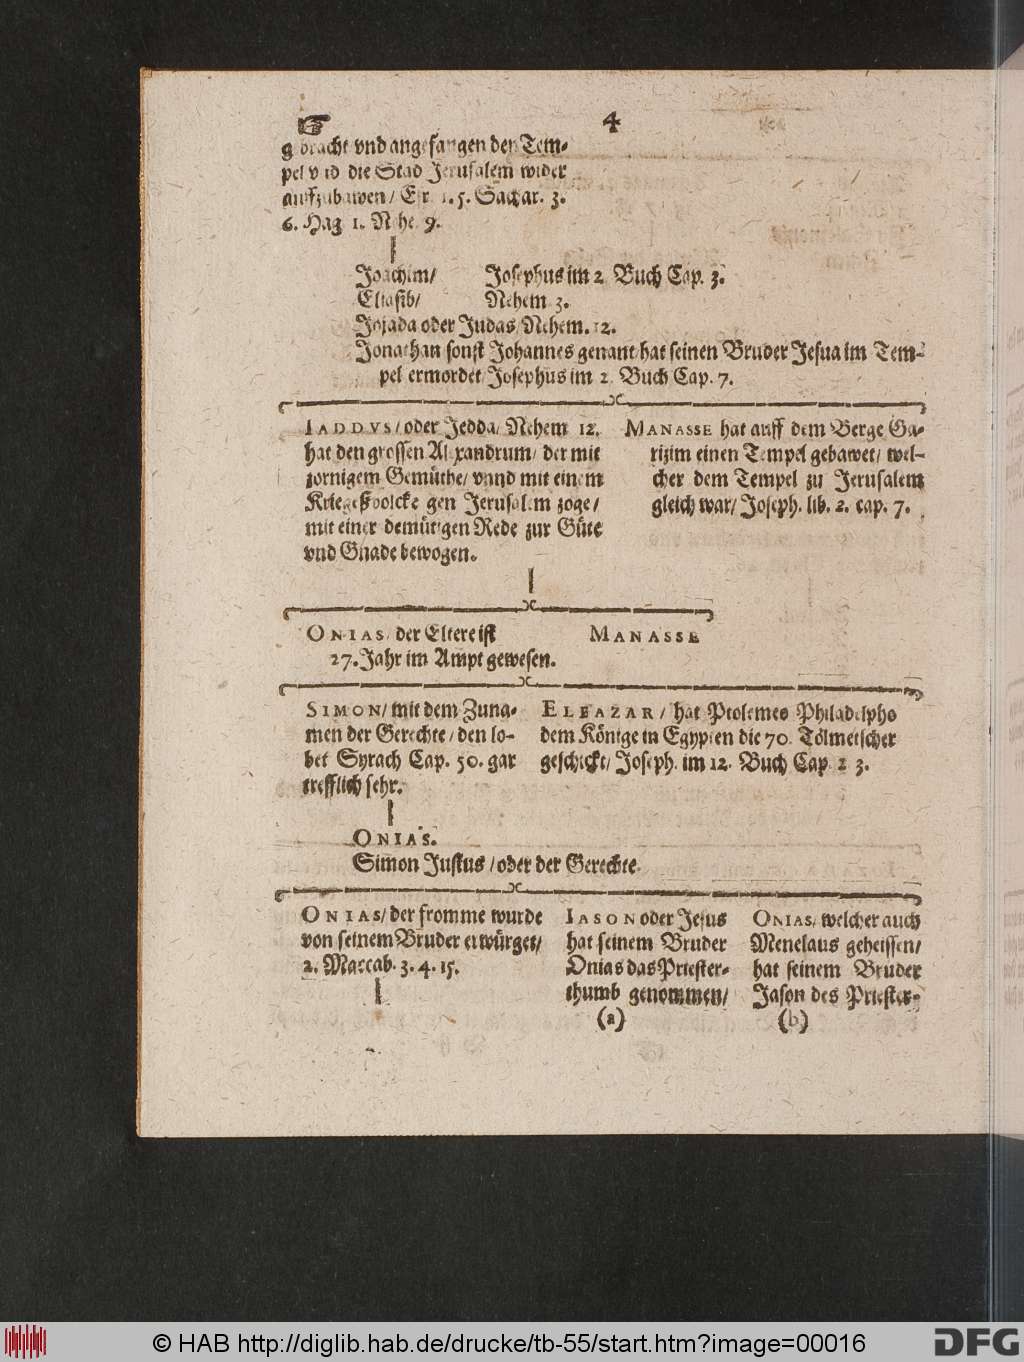 4
gebracht vnd angefangen den Tem-
pel vnd die Stad Jerusalem wider
auffzubawen / Esr. 1. 5. Sachar. 3.
6. Hag 1. Nehe. 9.
Joachim/ Josephus im 2. Buch Cap. 3.
Eliasib/ Nehem. 3.
Jojada oder Judas, Nehem. 12.
Jonathan sonst Johannes genant/ hat seinen Bruder Jesua im Tem-
pel ermordet/ Josephus im 2. Buch Cap. 7.
IADDVS / oder Jedda/ Nehem 12.
hat den grossen Alexandrum/ der mit
zornigem Gemüthe/ vnnd mit einem
Kriegeßvolcke gen Jerusalem zoge/
mit einer demütigen Rede zur Güte
vnd Gnade bewogen.
MANASSE hat auff dem Berge Ga-
rizim einen Tempel gebawet/ wel-
cher dem Tempel zu Jerusalem
gleich war/ Joseph. lib. 2. cap. 7.
ONIAS, der Eltere ist
27. Jahr im Ampt gewesen.
MANASSE
SIMON/ mit dem Zuna-
men der Gerechte / den lo-
bet Syrach Cap. 50. gar
trefflich sehr.
ELEAZAR / hat Ptolemeo Philadelpho
dem Könige in Egypten die 70. Tolmetscher
geschickt/ Joseph. im 12. Buch Cap. 2 3.
ONIAS.
Simon Justus / oder der Gerechte.
ONIAS/ der fromme wurde
von seinem Bruder erwürget/
2. Maccab. 3. 4. 15.
IASON oder Jesus
hat seinem Bruder
Onias das Priester-
thumb genommen/
(a)
ONIAS, welcher auch
Menelaus geheissen/
hat seinem Bruder
Jason des Priester-
(b)
© HAB http://diglib.hab.de/drucke/tb-55/start.htm?image=00016
DFG